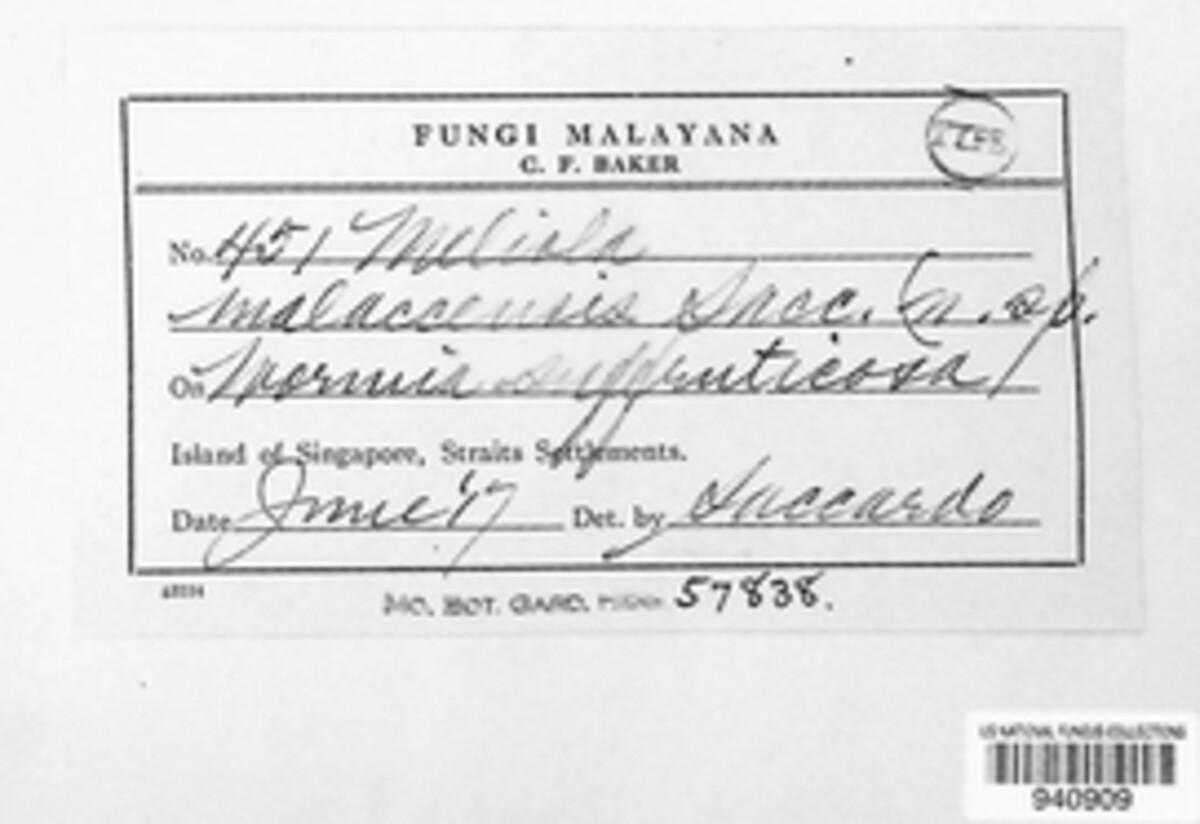 FUNGI MALAYANA
C. F. BAKER
No. 451 Meliola
malaccensis Sacc. (n. sp.
On Wormia suffruticosa)
Island of Singapore, Straits Settlements.
Date June '17 Det. by Saccardo
MO. BOT. GARD. 57838.
US NATIONAL FUNGUS COLLECTIONS
940909